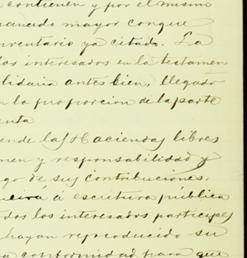 contienen y por el mismo
mayor conque
inventario ya citado. La
los interesados en la testamen
antes bien, llegado
la proporcion de la parte
ende las Haciendas libres
men y responsabilidad y
go de sus contribuciones.
á escritura pública
dos los interesados participes
hayan reproducido su
conformidad para que